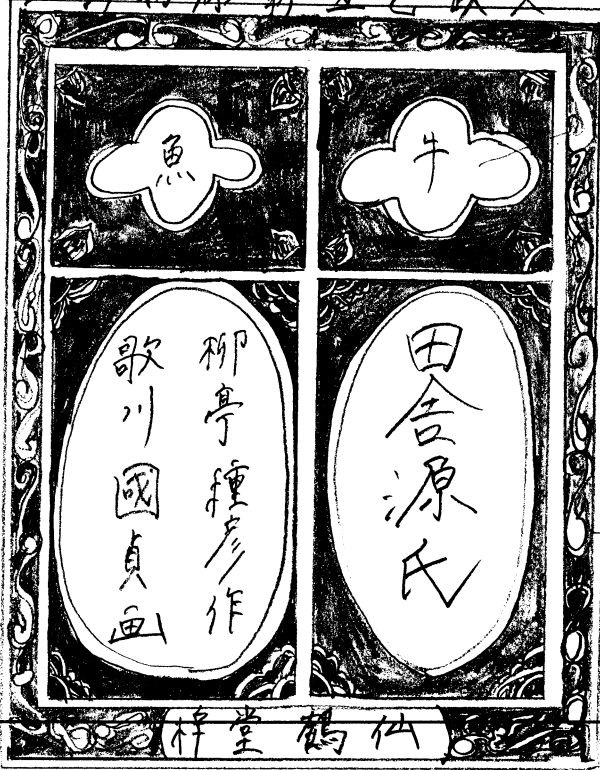 牛
魚
田舎源氏
柳亭種彦作
歌川國貞画
仙鶴堂梓